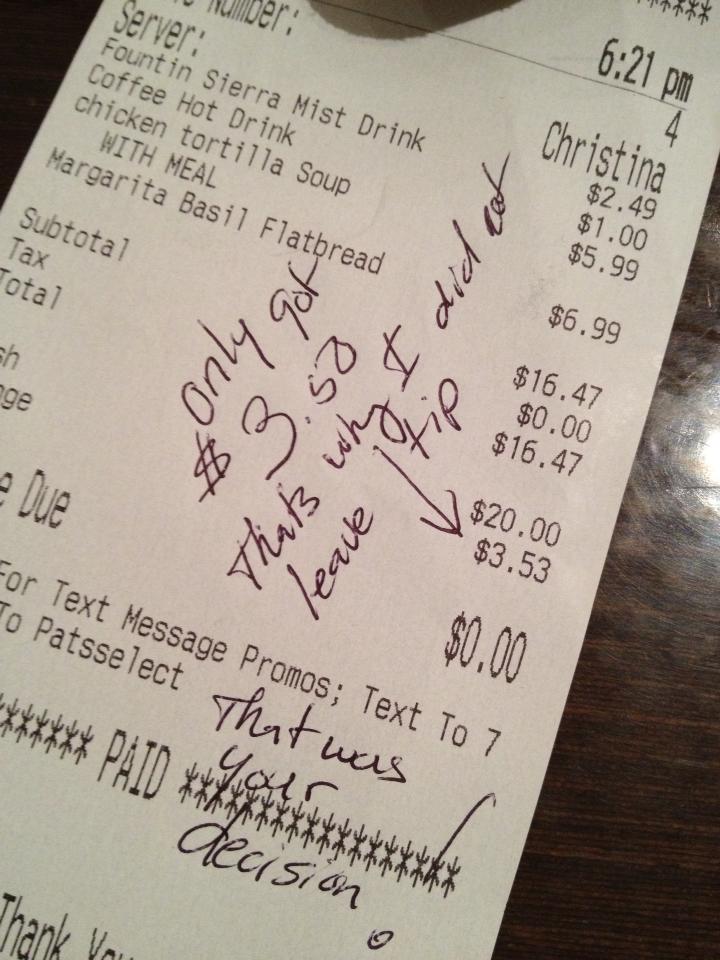 Number:
******
6:21 pm
Server: 4
Christina
Fountin Sierra Mist Drink $2.49
Coffee Hot Drink $1.00
chicken tortilla Soup $5.99
WITH MEAL
Margarita Basil Flatbread $6.99
Subtotal $16.47
Tax $0.00
Total $16.47
sh $20.00
nge $3.53
e Due $0.00
Only got
$3.50
thats why I did not
leave tip
For Text Message Promos; Text To 7
To Patsselect
That was
your
decision.
******* PAID ******************
Thank You